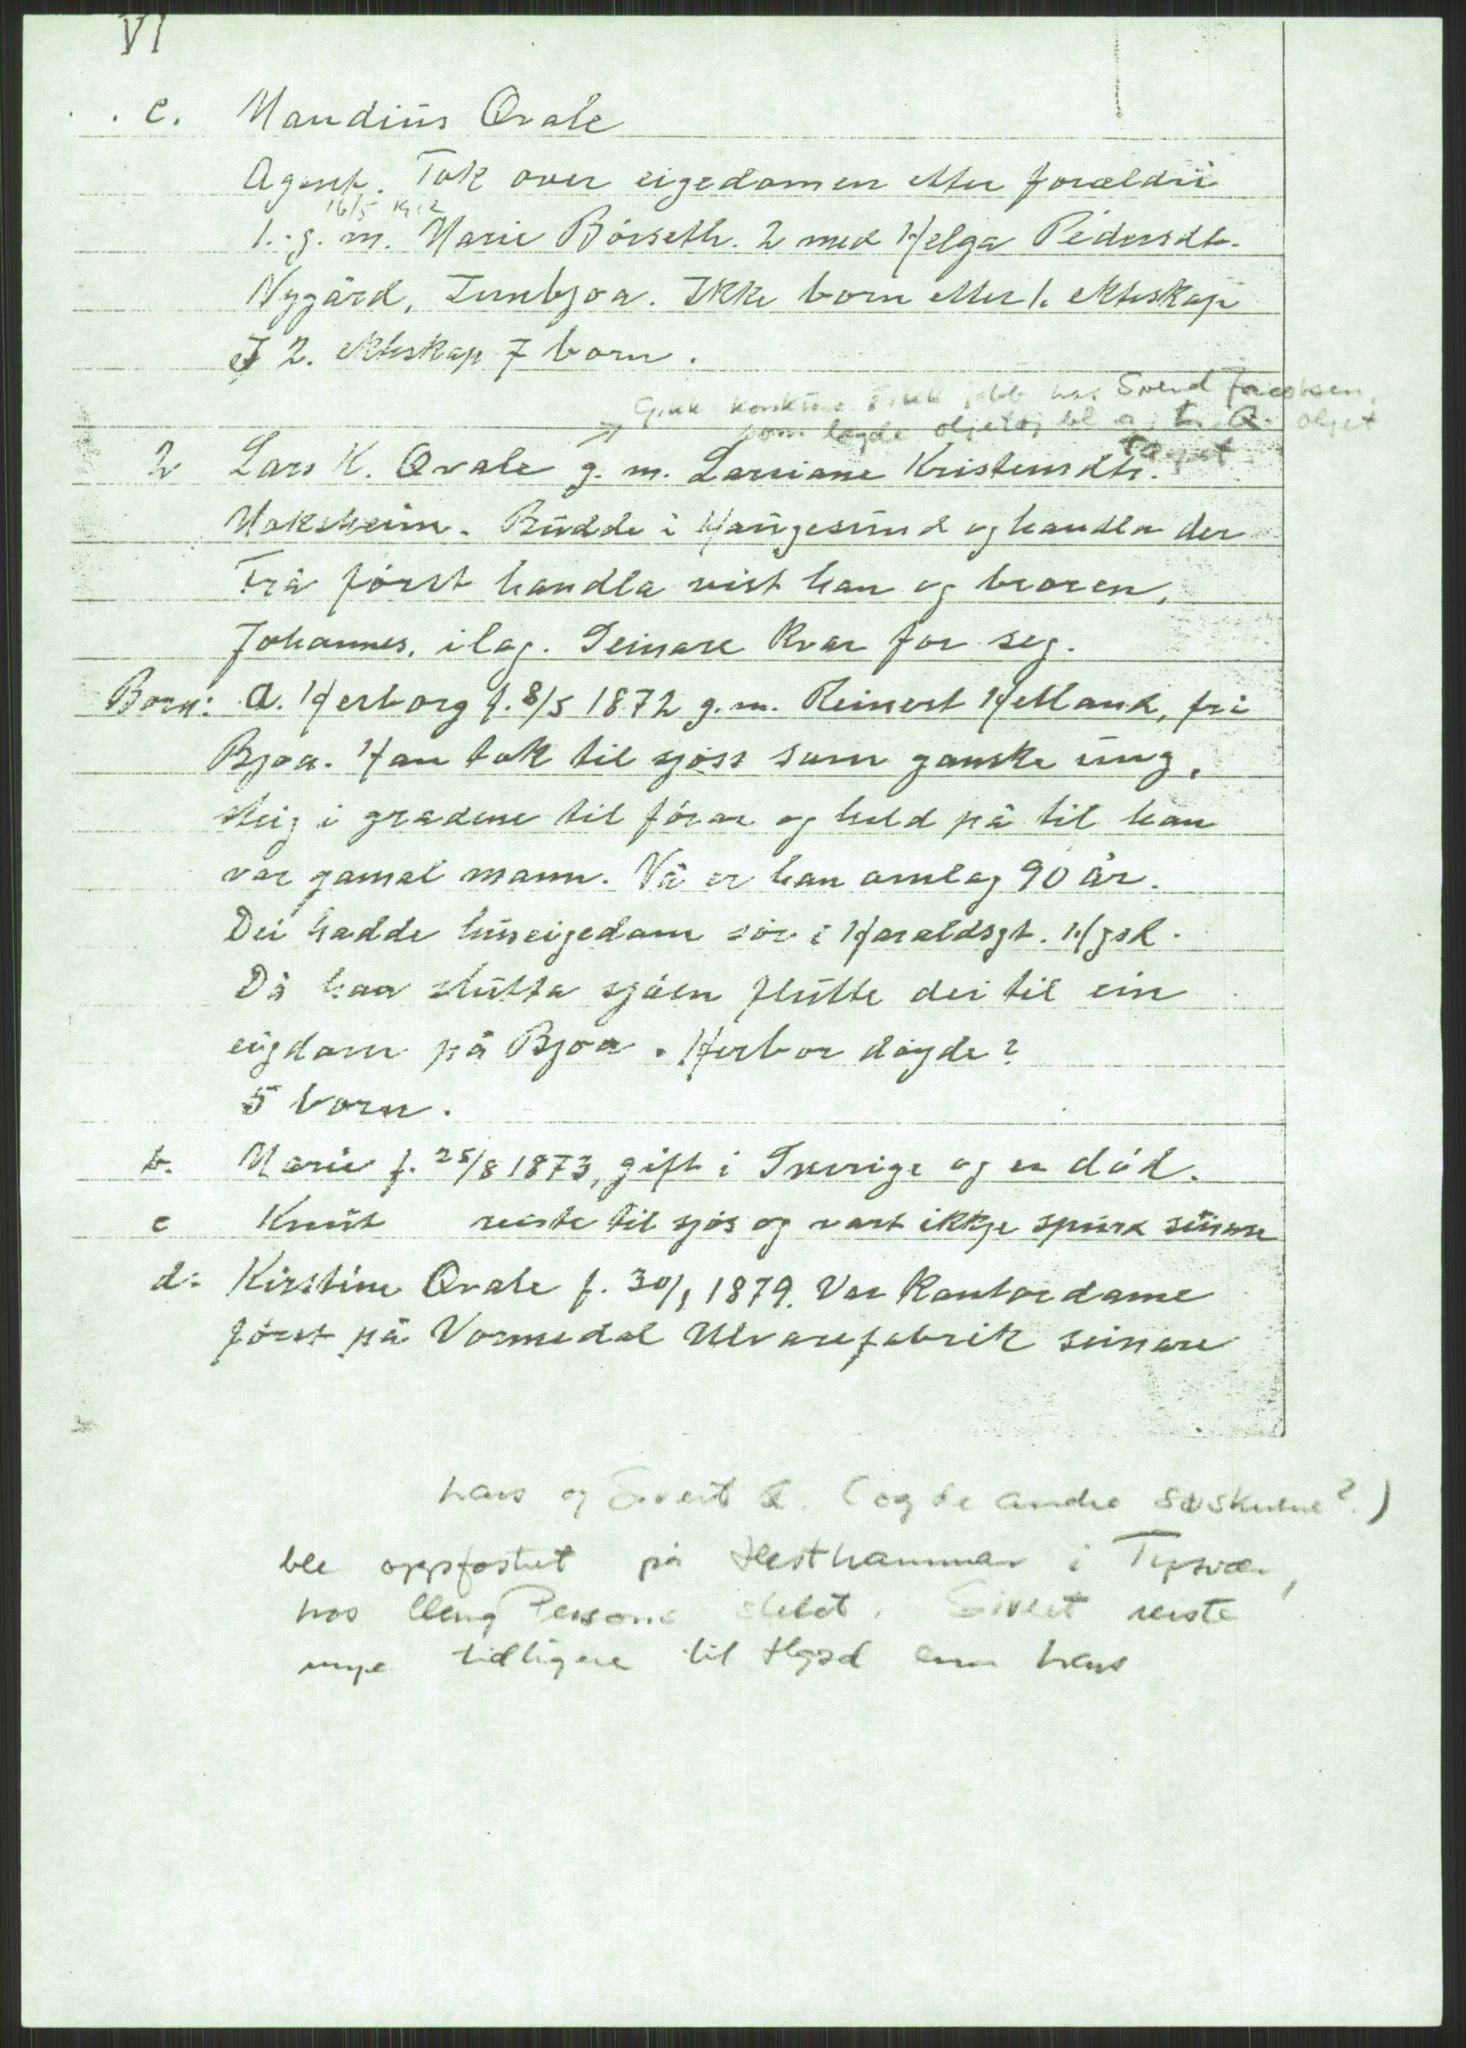 VI
c. Mandius Qvale
Agent. Tok over eigedomen etter foreldri
16/5 1912
1. g. m. Marie Börseth. 2 med Helga Pedersdtr.
Nygård, Imbjoa. Ikke born etter 1. ekteskap
I 2. ekteskap 7 born.
Gikk konkurs Fikk jobb hos Sverd Jacobsen,
som lagde oljetøj bl a, L. Q. oljet
agent
2 Lars K. Qvale g. m. Larsiane Kristensdtr.
Moksheim. Budde i Haugesund og handla der
Frå först handla vist han og broren,
Johannes, ilag. Seinare kvar for seg.
Born: a. Herborg f. 8/5 1872 g. m. Reinert Hetland, frå
Bjoa. Han tok til sjöss som ganske ung,
steig i gradene til förar og held på til han
var gamal mann. Nå er han omlag 90 år.
Dei hadde huseigedom sör i Haraldsgt. Hgsd.
Då han slutta sjöen flutte dei til ein
eigdom på Bjoa. Herbor döyde?
5 born.
b. Marie f. 25/8 1873, gift i Sverige og er död.
c Knut reiste til sjös og vart ikkje spurd seinare
d: Kirstine Qvale f. 30/1 1879. Var kontordame
först på Vormedal Ulvarefabrik seinare
Lars og Sivert Q. (og de andre søsknene?)
ble oppfostret på Hesthammar i Tysvær,
hos Cleng Persons slekt. Sivert reiste
mye tidligere til Hgsd enn Lars